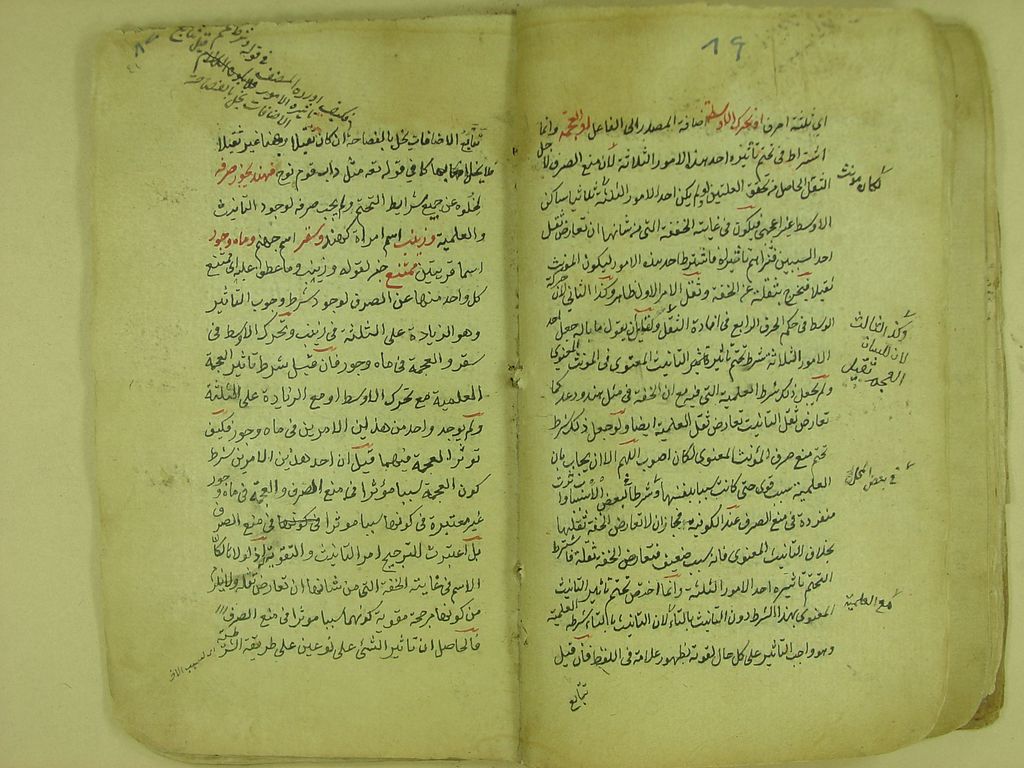 ١٩
اي ثلثة احرف او تحرك الاوسط اضافة المصدر الى الفاعل او العجمة وانما
اشتراط في تحتم تاثيره احد هذه الامور الثلاثة لان منع الصرف لاجل
الثقل الحاصل من تحقق العلتين ولو لم يكن احد الامور الثلثة ثلاثيا ساكن
الاوسط غير اعجمي فيكون في غاية الخفة التي من شانها ان تعارض ثقل
احد السببين فتزاحم تاثيره فاشترط احد هذه الامور ليكون المؤنث
ثقيلا فيخرج بثقله عن الخفة وثقل الامر الاول ظاهر وكذا الثاني لان حركة
الوسط في حكم الحرف الرابع في افادة الثقل ولقايل ان يقول ما باله جعل احد
الامور الثلاثة شرط تحتم تاثير التانيث المعنوي في المونث المعنوي
ولم يجعل ذلك شرط العلمية التي فيه مع ان الخفة في مثل هند ودعد كما
تعارض ثقل التانيث تعارض ثقل العلمية ايضا ولو جعل ذلك شرط
تحتم منع صرف المؤنث المعنوي لكان اصوب اللهم الا ان يجاب بان
العلمية سبب قوي حتى كانت سببا بنفسها وشرطا لبعض الاسباب
منفردة في منع الصرف عند الكوفيين فجاز ان لا تعارض الخفة ثقلها
بخلاف التانيث المعنوي فانه سبب ضعيف فتعارض الخفة ثقله فاشترط
لتحتم تاثيره احد الامور الثلثة وانما اختص تحتم تاثير التانيث
المعنوي بهذا الشرط دون التانيث بالتاء لان التانيث بالتاء بشرط العلمية
وهو واجب التاثير على كل حال لقوته بظهور علامته في اللفظ فان قيل
تتابع
لكان مونث
وكذا الثالث
لان لسان
العجم ثقيل
في بعض المحل
مع العلمية
في قوله وشرط تحتم تاثيره
فكيف اورده المصنف
الاضافات يخل بالفصاحة
تتابع الاضافات يخل بالفصاحة ان كان ثقيلا وههنا غير ثقيلا
فلا يخل بها كما في قوله تعه مثل داب قوم نوح فهند يجوز صرفه
لخلوه عن جميع شرايط التحتم ولم يجب صرفه لوجود التانيث
والعلمية وزينب اسم امراة كهند وسقر اسم جهنم وماه وجور
اسما قريتين ممتنع خبر لقوله وزينب وما عطف عليه اي ممتنع
كل واحد منها عن الصرف لوجود شرط وجوب التاثير
وهو الزيادة على الثلثة في زينب وتحرك الاوسط في
سقر والعجمة في ماه وجور فان قيل شرط تاثير العجمة
العلمية مع تحرك الاوسط او مع الزيادة على الثلثة
ولم يوجد واحد من هذين الامرين في ماه وجور فكيف
توثر العجمة فيهما قيل ان احد هذين الامرين شرط
كون العجمة سببا مؤثرا في منع الصرف والعجمة في ماه وجور
غير معتبرة في كونها سببا موثرا في منع الصرف
بل اعتبرت للترجيح امر التانيث والتقوية اذ لولاها لكان
الاسم في غاية الخفة التي من شانها ان تعارض ثقله ولا يلزم
من كونها مرجحة مقوية كونها سببا موثرا في منع الصرف
فالحاصل ان تاثير الشئ على نوعين على طريقة الشرطية